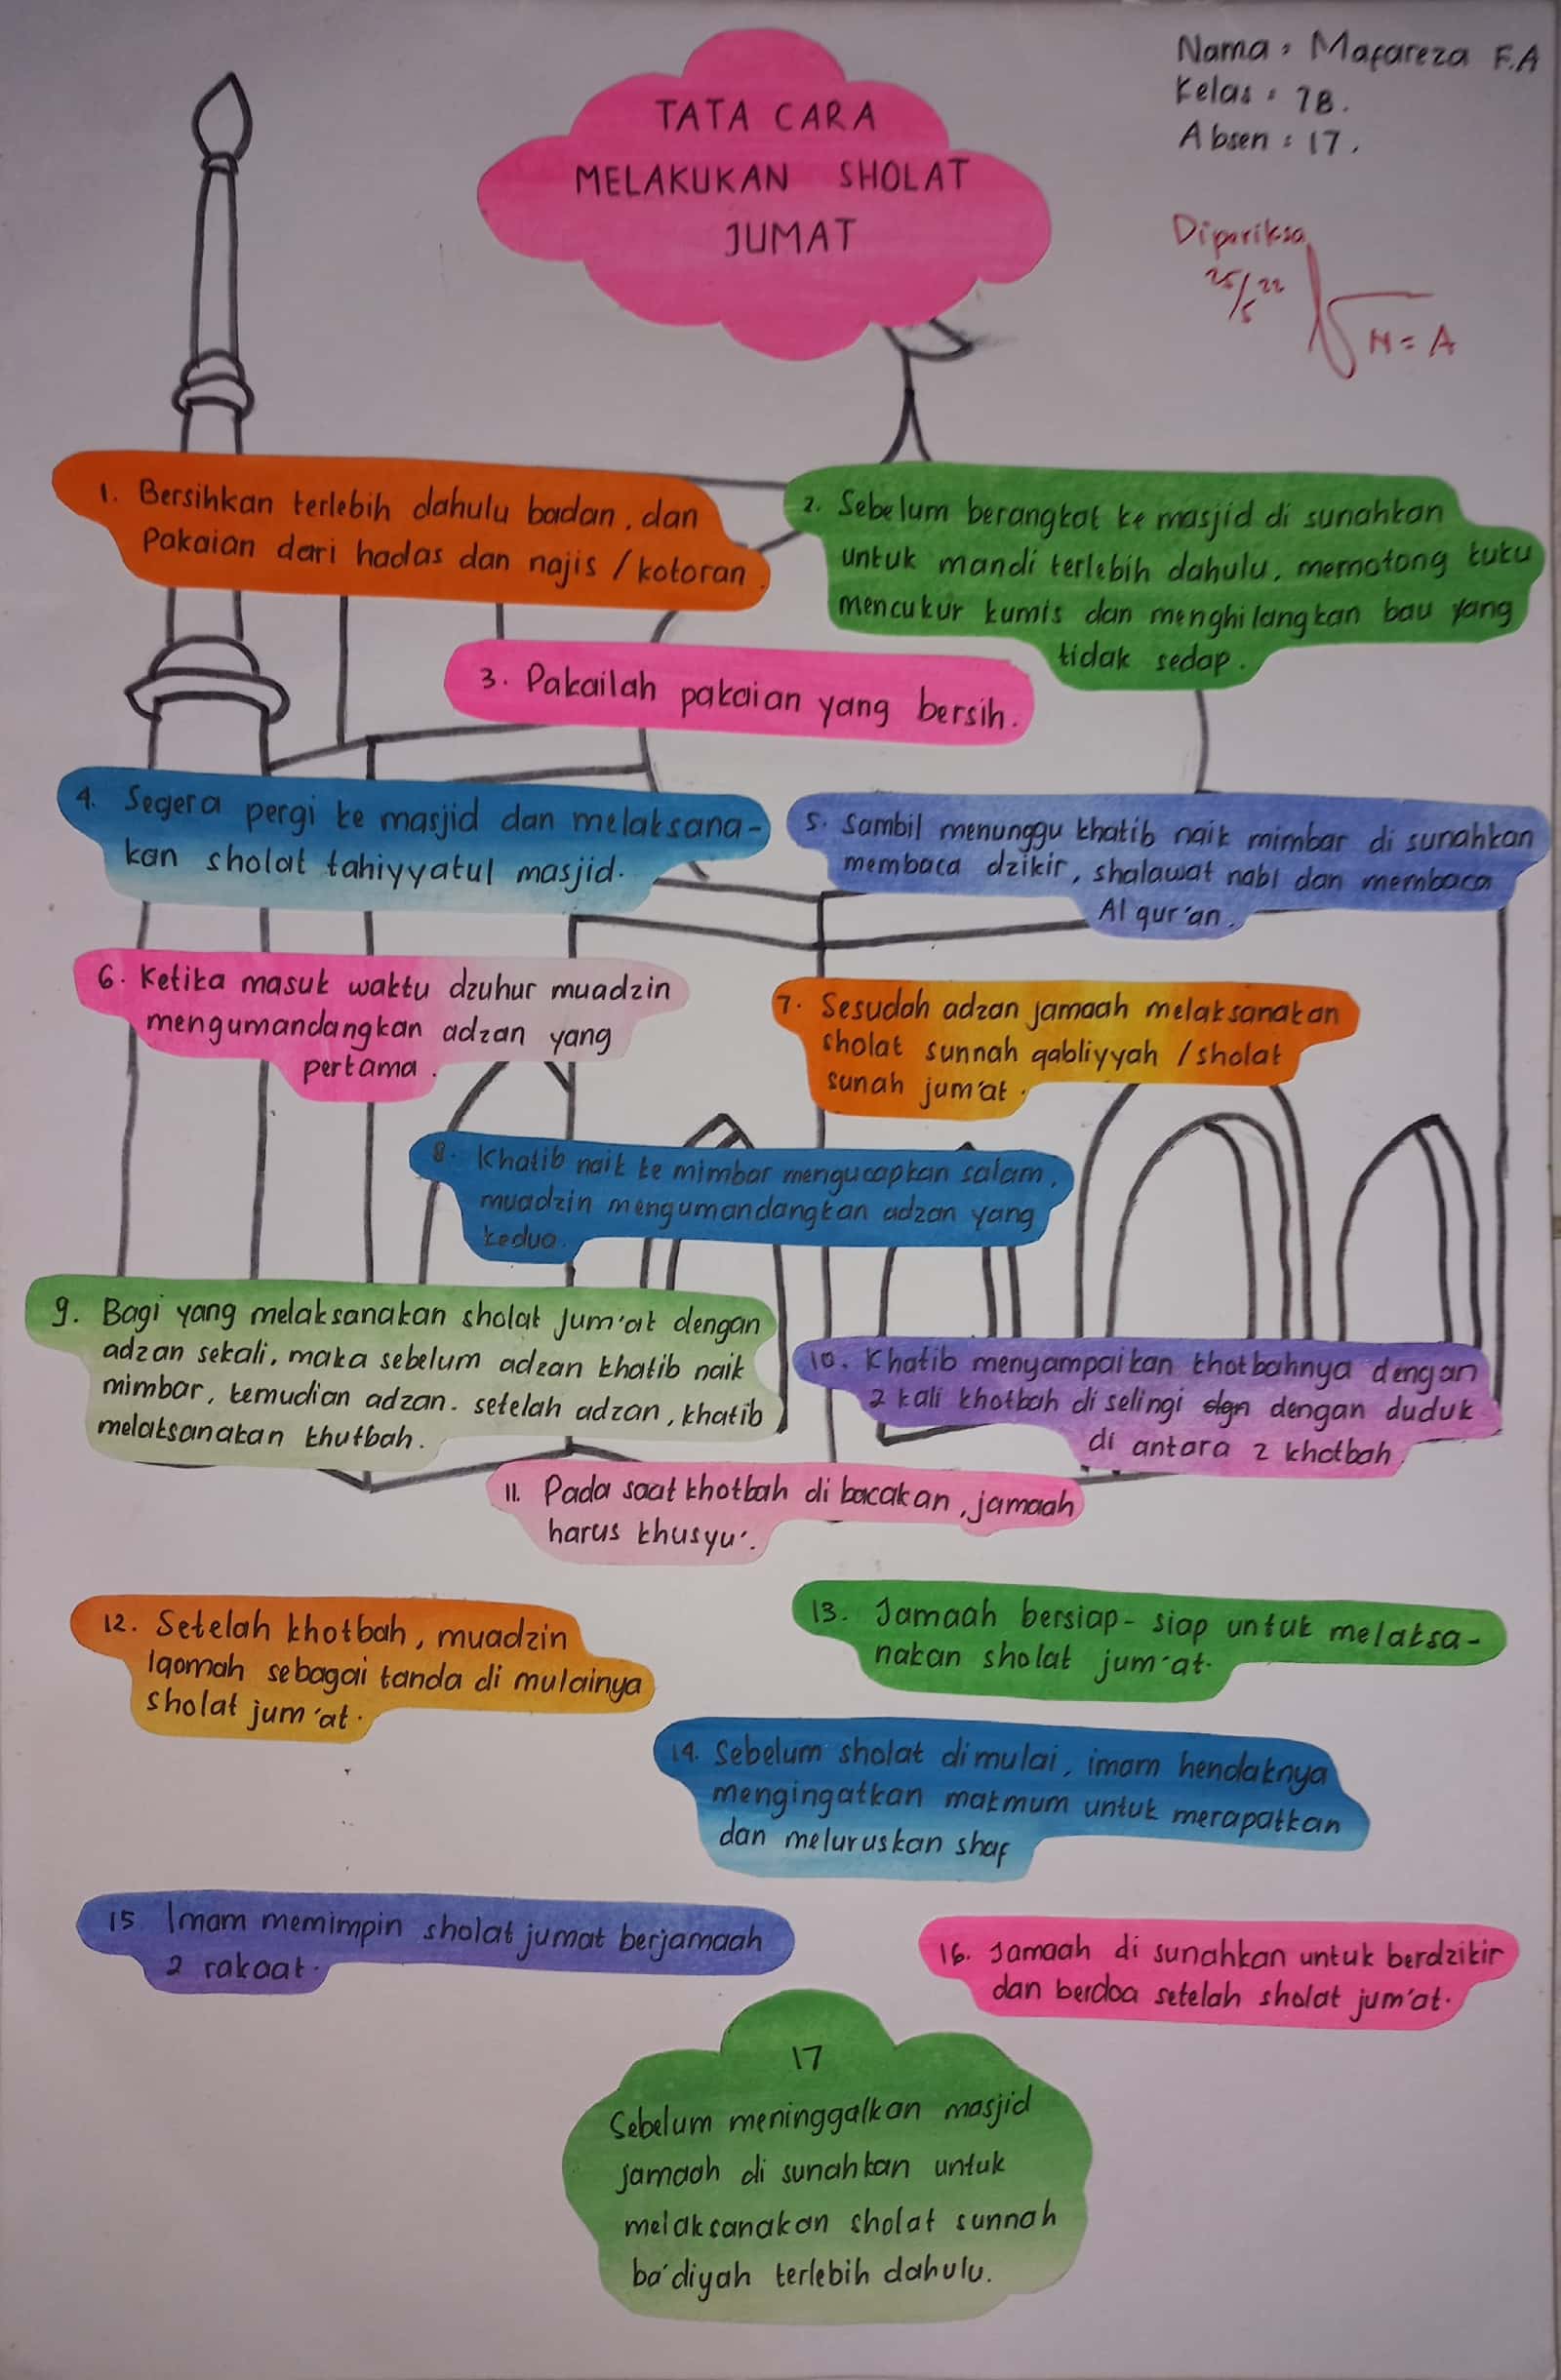 TATA CARA
MELAKUKAN SHOLAT
JUMAT
Nama : Mafareza F.A
Kelas : 7B.
Absen : 17.
Diperiksa
25/5 22
N = A
1. Bersihkan terlebih dahulu badan, dan
Pakaian dari hadas dan najis / kotoran.
2. Sebelum berangkat ke masjid di sunahkan
untuk mandi terlebih dahulu, memotong kuku
mencukur kumis dan menghilangkan bau yang
tidak sedap.
3. Pakailah pakaian yang bersih.
4. Segera pergi ke masjid dan melaksana-
kan sholat tahiyyatul masjid.
5. Sambil menunggu khatib naik mimbar di sunahkan
membaca dzikir, shalawat nabi dan membaca
Al qur'an.
6. Ketika masuk waktu dzuhur muadzin
mengumandangkan adzan yang
pertama.
7. Sesudah adzan jamaah melaksanakan
sholat sunnah qabliyyah / sholat
sunah jum'at.
8. Khatib naik ke mimbar mengucapkan salam,
muadzin mengumandangkan adzan yang
kedua.
9. Bagi yang melaksanakan sholat Jum'at dengan
adzan sekali, maka sebelum adzan khatib naik
mimbar, kemudian adzan. setelah adzan, khatib
melaksanakan khutbah.
10. Khatib menyampaikan khotbahnya dengan
2 kali khotbah di selingi dgn dengan duduk
di antara 2 khotbah.
11. Pada saat khotbah di bacakan, jamaah
harus khusyu'.
12. Setelah khotbah, muadzin
Iqomah sebagai tanda di mulainya
sholat jum'at.
13. Jamaah bersiap-siap untuk melaksa-
nakan sholat jum'at.
14. Sebelum sholat di mulai, imam hendaknya
mengingatkan makmum untuk merapatkan
dan meluruskan shaf
15. Imam memimpin sholat jumat berjamaah
2 rakaat.
16. Jamaah di sunahkan untuk berdzikir
dan berdoa setelah sholat jum'at.
17
Sebelum meninggalkan masjid
jamaah di sunahkan untuk
melaksanakan sholat sunnah
ba'diyah terlebih dahulu.